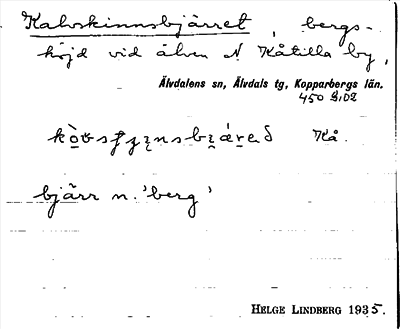 Kalvskinnsbjärret, bergs-
höjd vid älven N Kåtilla by,
Älvdalens sn, Älvdals tg, Kopparbergs län.
450 9,02
Kå.
bjärr n. 'berg'
HELGE LINDBERG 1935.